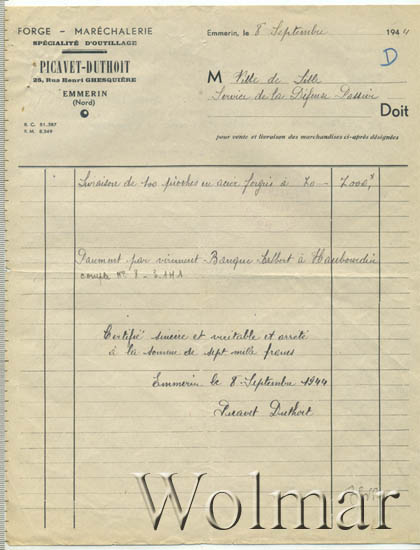 FORGE – MARÉCHALERIE
SPÉCIALITÉ D'OUTILLAGE
PICAVET-DUTHOIT
25, Rue Henri GHESQUIÈRE
EMMERIN
(Nord)
R. C. 81.387
F. M. 8.249
Emmerin, le 8 Septembre 1944
D
M Ville de Lille
Service de la Défense Passive
Doit
pour vente et livraison des marchandises ci-après désignées
Livraison de 100 pioches en acier forgés à 70 - 7000,
Paiement par virement Banque à Haubourdin
compte N° 8
Certifié sincère et véritable et arrêté
à la somme de sept mille francs
Emmerin le 8 Septembre 1944
Picavet Duthoit
Wolmar